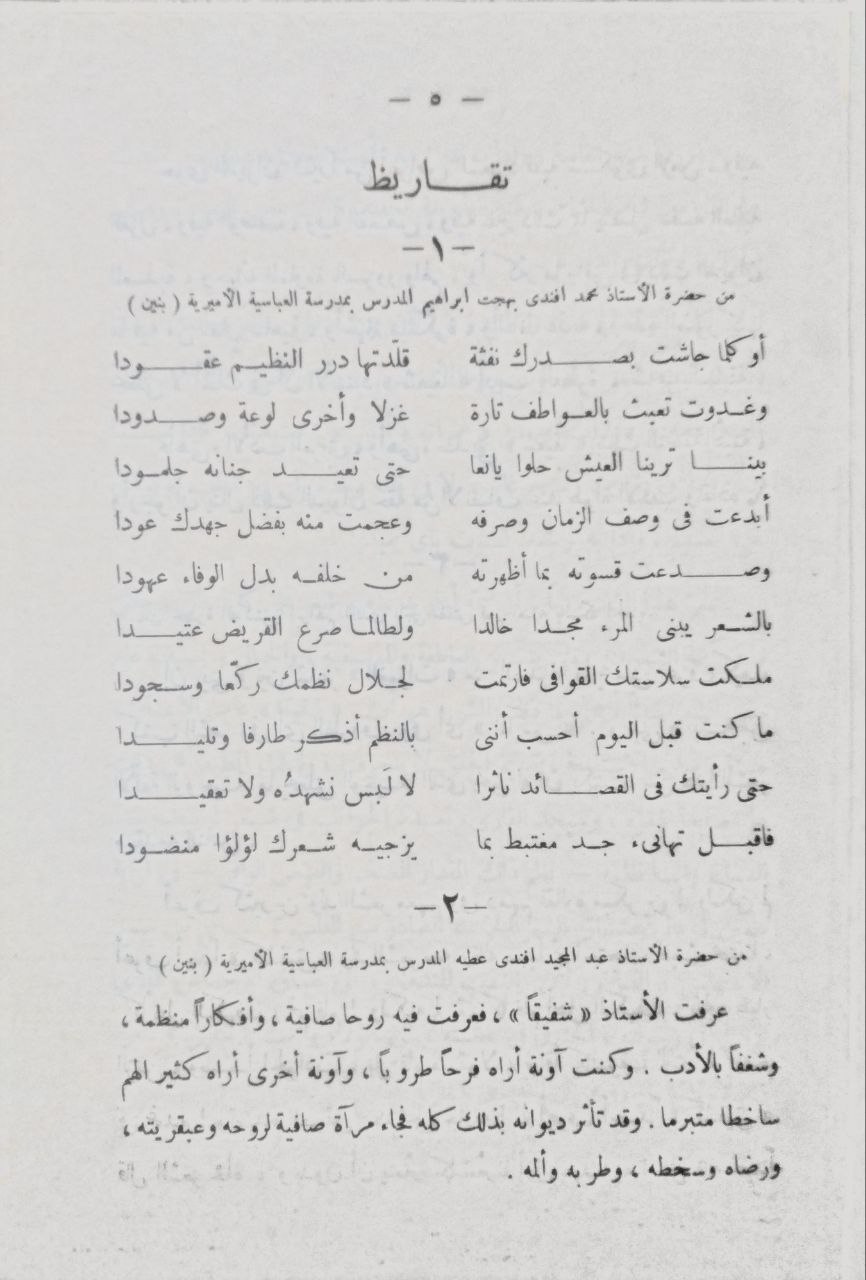 — ٥ —
تقـــاريظ
— ١ —
من حضرة الأستاذ محمد افندى بهجت ابراهيم المدرس بمدرسة العباسية الأميرية ( بنين )
أو كلما جاشت بصـــدرك نفثة قلّدتها درر النظيـم عقـــودا
وغـدوت تعبث بالعـواطف تارة غزلا وأخرى لوعة وصـــدودا
بينـــا ترينا العيش حلوا يانعا حتى تعيـــد جنانه جلمـودا
أبدعت فى وصف الزمان وصرفه وعجمت منه بفضل جهدك عودا
وصـــدعت قسوته بما أظهرته من خلفـه بدل الوفاء عهودا
بالشعـر يبنى المرء مجـدا خالدا ولطالمـا صرع القريض عتيـــدا
ملـكت سلاستك القوافى فارتمت لجـلال نظمك ركّعا وسـجودا
ما كنت قبل اليوم أحسب أننى بالنظم أذكـر طارفا وتليـــدا
حتى رأيتك فى القصـــائد ناثرا لا لَبس نشهدُه ولا تعقيـــدا
فاقبـــل تهانىء جـد مغتبط بما يزجيـه شـعرك لؤلؤا منضـودا
— ٢ —
من حضرة الأستاذ عبد المجيد افندى عطيه المدرس بمدرسة العباسية الأميرية ( بنين )
عرفت الأستاذ « شفيقاً » ، فعرفت فيه روحا صافية ، وأفكاراً منظمة ،
وشغفاً بالأدب . وكنت آونة أراه فرحاً طروباً ، وآونة أخرى أراه كثير الهم
ساخطا متبرما . وقد تأثر ديوانه بذلك كله فجاء مرآة صافية لروحه وعبقريته ،
ورضاه وسخطه ، وطربه وألمه .